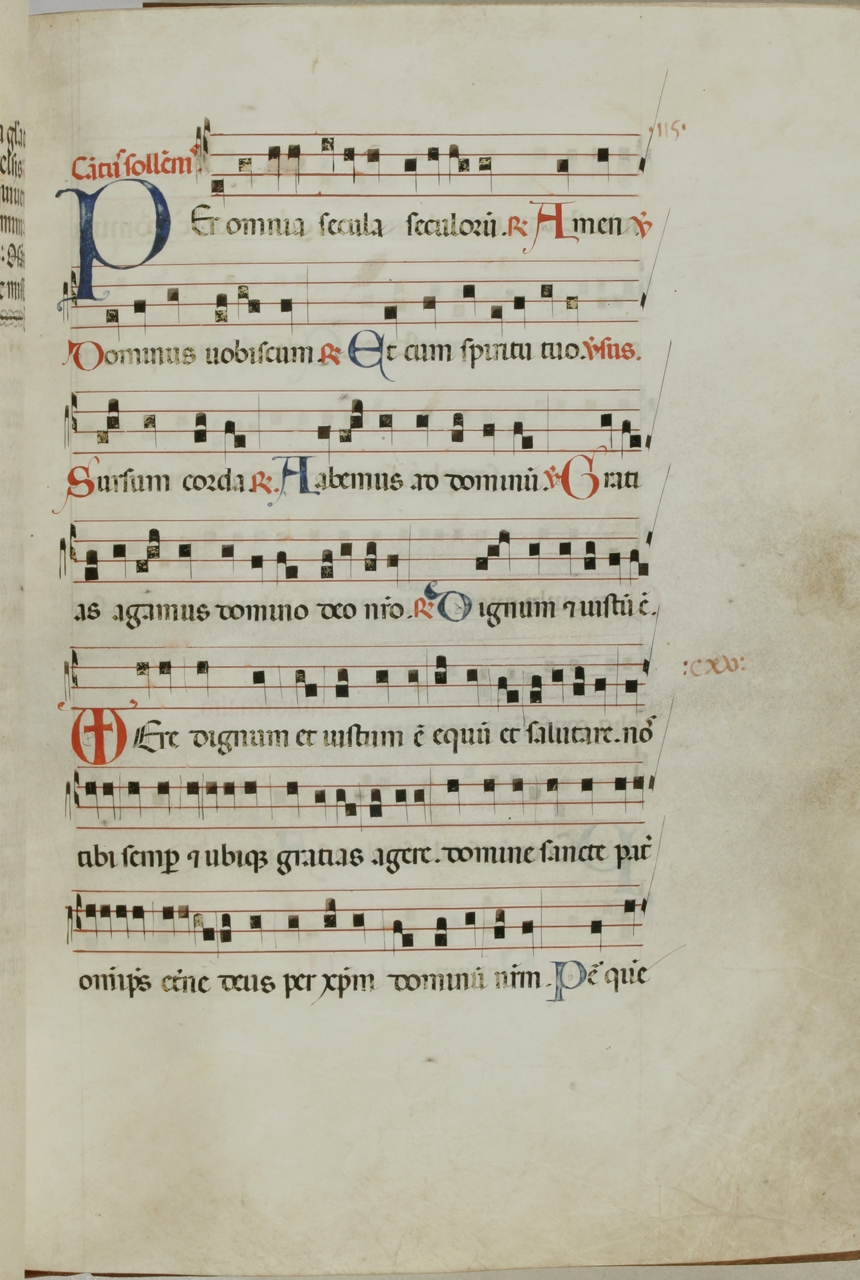 ·115·
Cātꝰ sollēm
PEr omnia secula seculorū. ℟ Amen ℣
Dominus uobiscum ℟ Et cum spiritu tuo. ℣sus.
Sursum corda ℟. Habemus ad dominū. ℣ Grati
as agamus domino deo nr̄o. ℟ Dignum ⁊ iustū ē.
VEre dignum et iustum ē equū et salutare. nos
:cxv:
tibi semꝑ ⁊ ubiqꝫ gratias agere. domine sancte pat̄
om̄ip̄s et̄ne deus per xp̄m dominū nr̄m. Pē quē